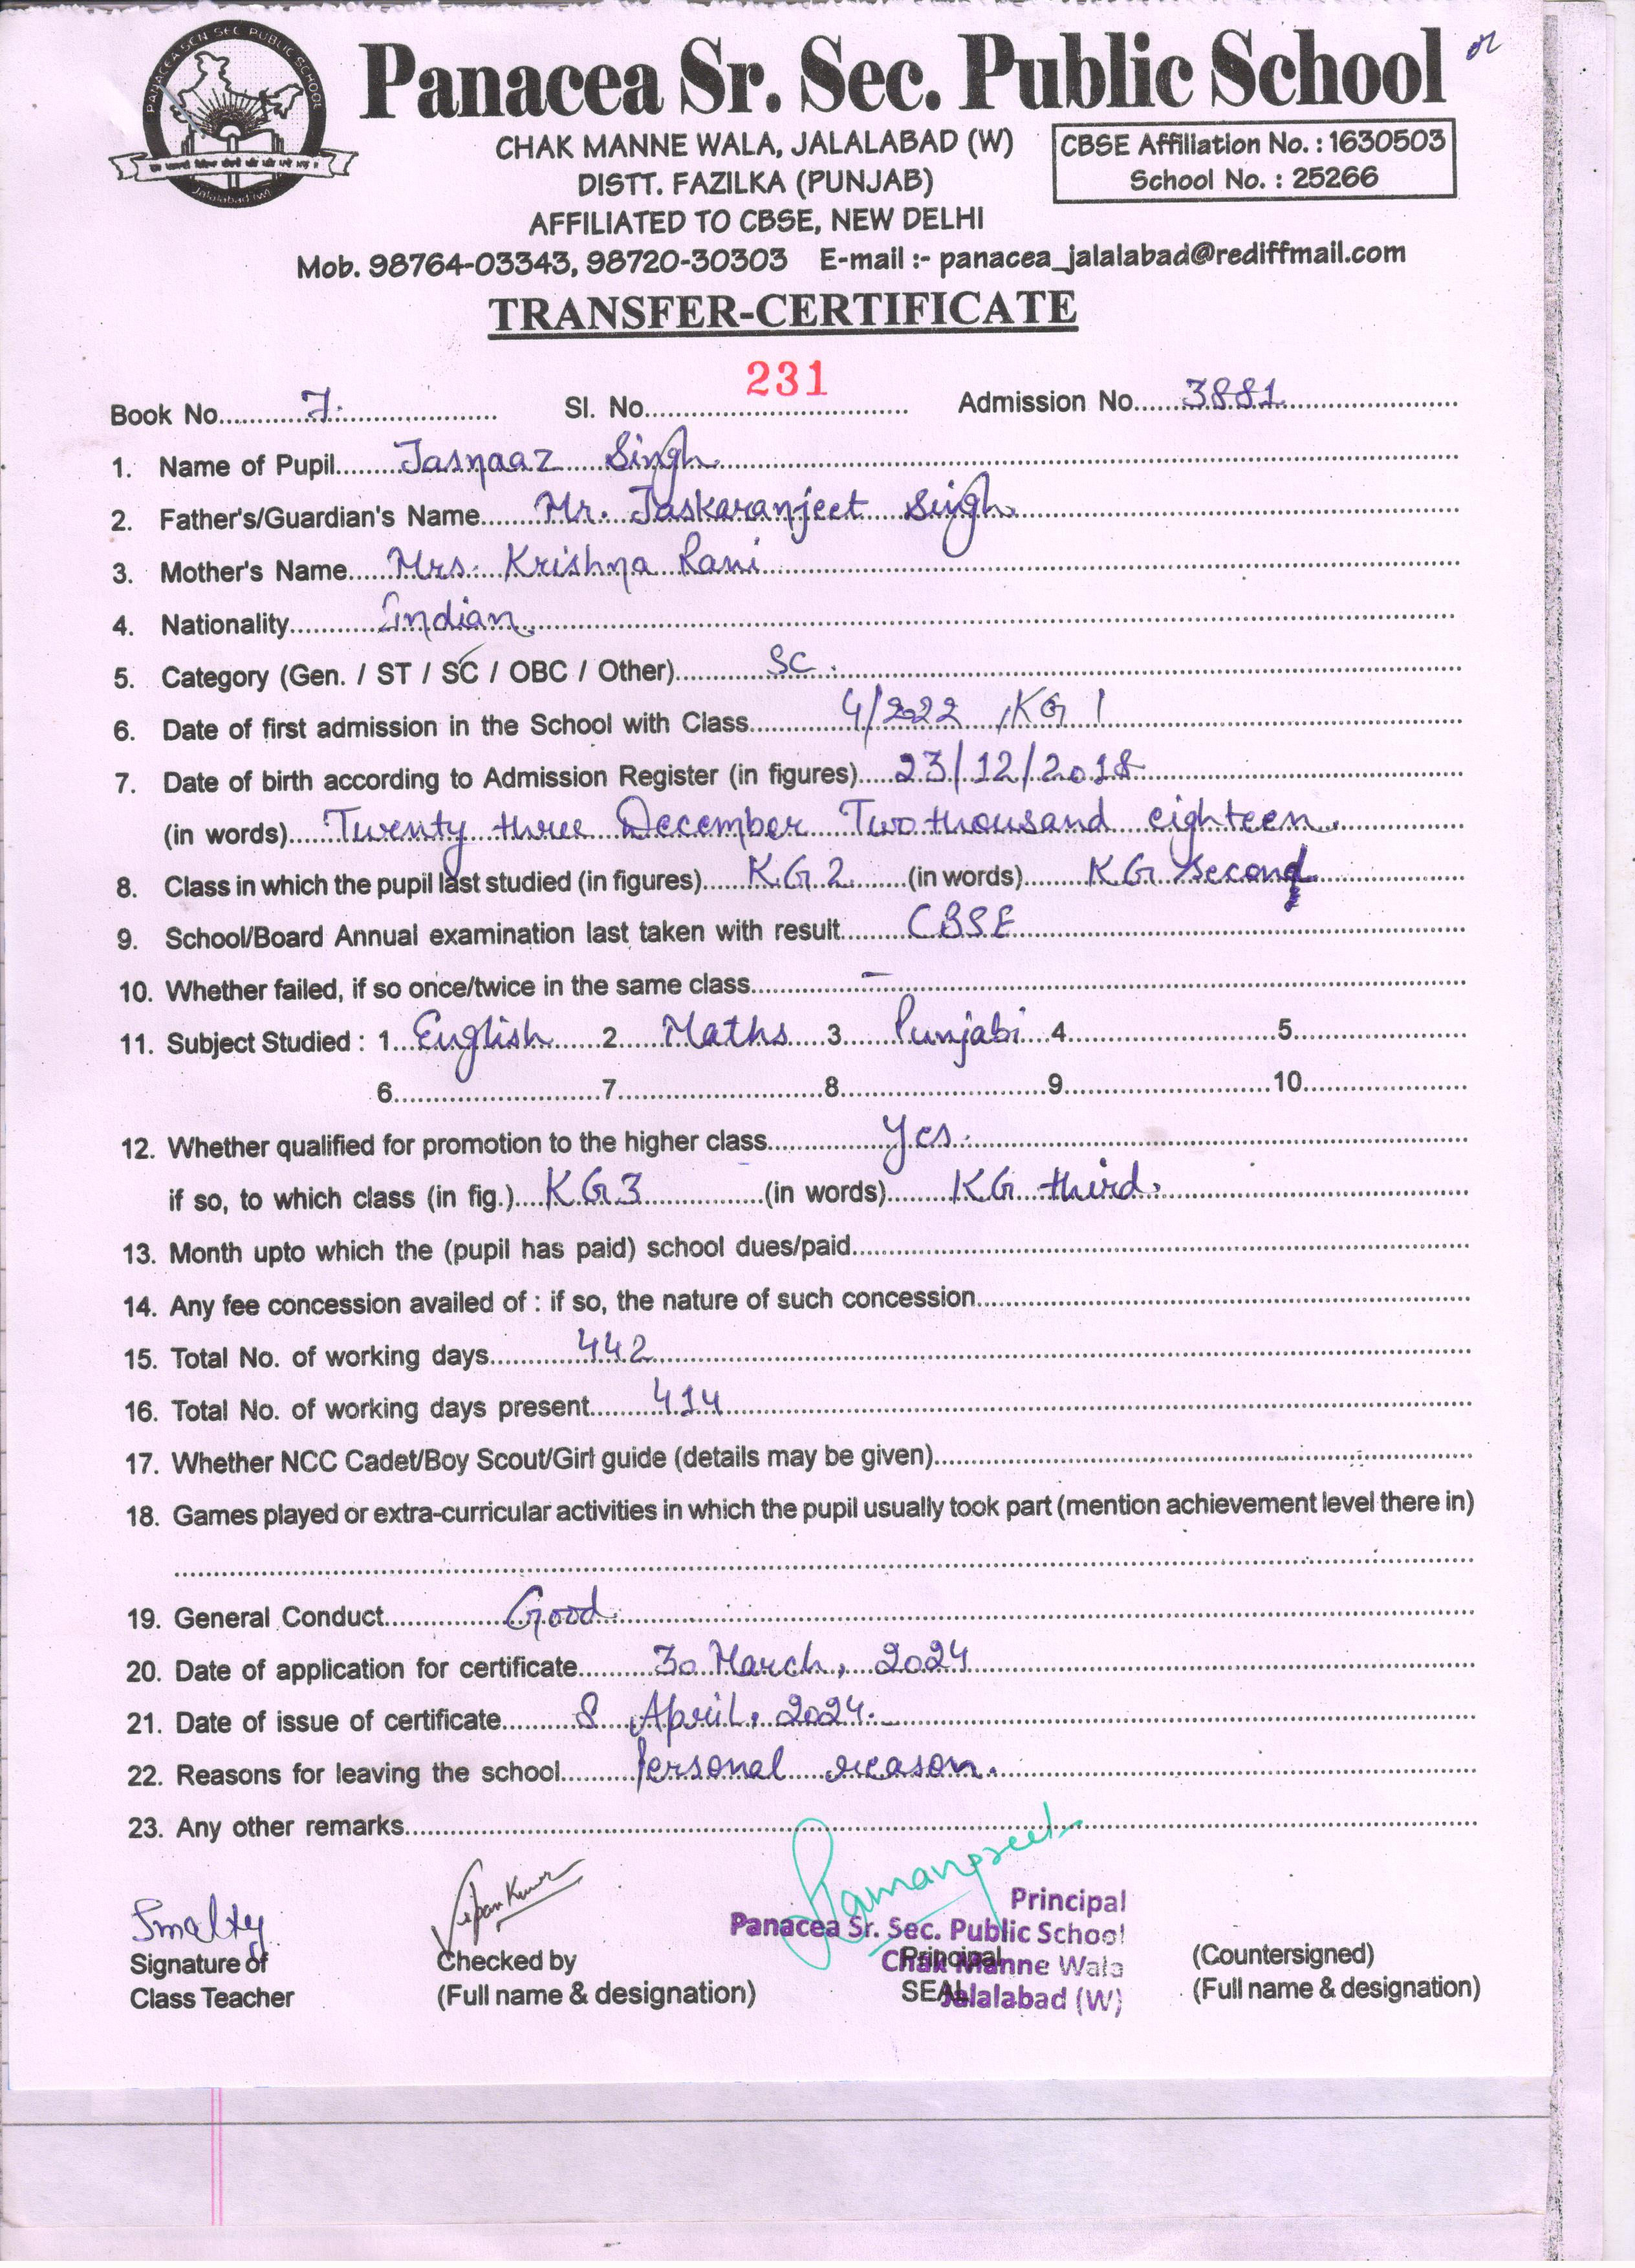 PANACEA SEN SEC PUBLIC SCHOOL
Jalalabad (W)
Panacea Sr. Sec. Public School
CHAK MANNE WALA, JALALABAD (W)
CBSE Affiliation No. : 1630503
School No. : 25266
DISTT. FAZILKA (PUNJAB)
AFFILIATED TO CBSE, NEW DELHI
Mob. 98764-03343, 98720-30303 E-mail :- panacea_jalalabad@rediffmail.com
TRANSFER-CERTIFICATE
Book No. 7. Sl. No. 231 Admission No. 3881
1. Name of Pupil Jasnaaz Singh
2. Father's/Guardian's Name Mr. Jaskaranjeet Singh
3. Mother's Name Mrs. Krishna Rani
4. Nationality Indian
5. Category (Gen. / ST / SC / OBC / Other) SC.
6. Date of first admission in the School with Class 4/2022, KG 1
7. Date of birth according to Admission Register (in figures) 23/12/2018
(in words) Twenty three December Two thousand eighteen.
8. Class in which the pupil last studied (in figures) K.G 2 (in words) KG Second
9. School/Board Annual examination last taken with result CBSE
10. Whether failed, if so once/twice in the same class –
11. Subject Studied : 1 English 2 Maths 3 Punjabi 4 5
6 7 8 9 10
12. Whether qualified for promotion to the higher class Yes.
if so, to which class (in fig.) KG3 (in words) KG third.
13. Month upto which the (pupil has paid) school dues/paid
14. Any fee concession availed of : if so, the nature of such concession
15. Total No. of working days 442
16. Total No. of working days present 414
17. Whether NCC Cadet/Boy Scout/Girl guide (details may be given)
18. Games played or extra-curricular activities in which the pupil usually took part (mention achievement level there in)
19. General Conduct Good
20. Date of application for certificate 30 March, 2024
21. Date of issue of certificate 8 April, 2024.
22. Reasons for leaving the school Personal reason.
23. Any other remarks
Ramanpreet
Principal
Panacea Sr. Sec. Public School
Chak Manne Wala
Jalalabad (W)
Signature of
Class Teacher
Checked by
(Full name & designation)
Principal
SEAL
(Countersigned)
(Full name & designation)